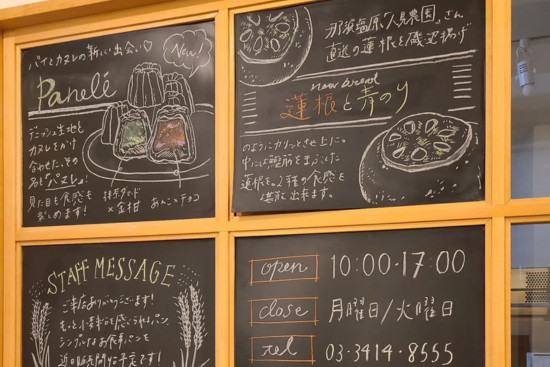 パイとカヌレの新しい出会い♡
New!
Panelé
デニッシュ生地と
カヌレをかけ
合わせた、その
名も「パヌレ」!
見た目も食感も
楽しめます!
抹茶カスタード
×金柑
あんこ×チョコ
那須塩原「八島農園」さん
直送の蓮根を磯辺揚げ
new bread
蓮根と青のり
のようにカリッとさせ上に。
中には
蓮根を。2種の食感を
堪能出来ます。
STAFF MESSAGE
ご来店ありがとうございます!
もっと小麦を感じられるパン、
シンプルなお食事パンを
近日販売開始予定です!
open 10:00-17:00
close 月曜日/火曜日
tel 03-3414-8555